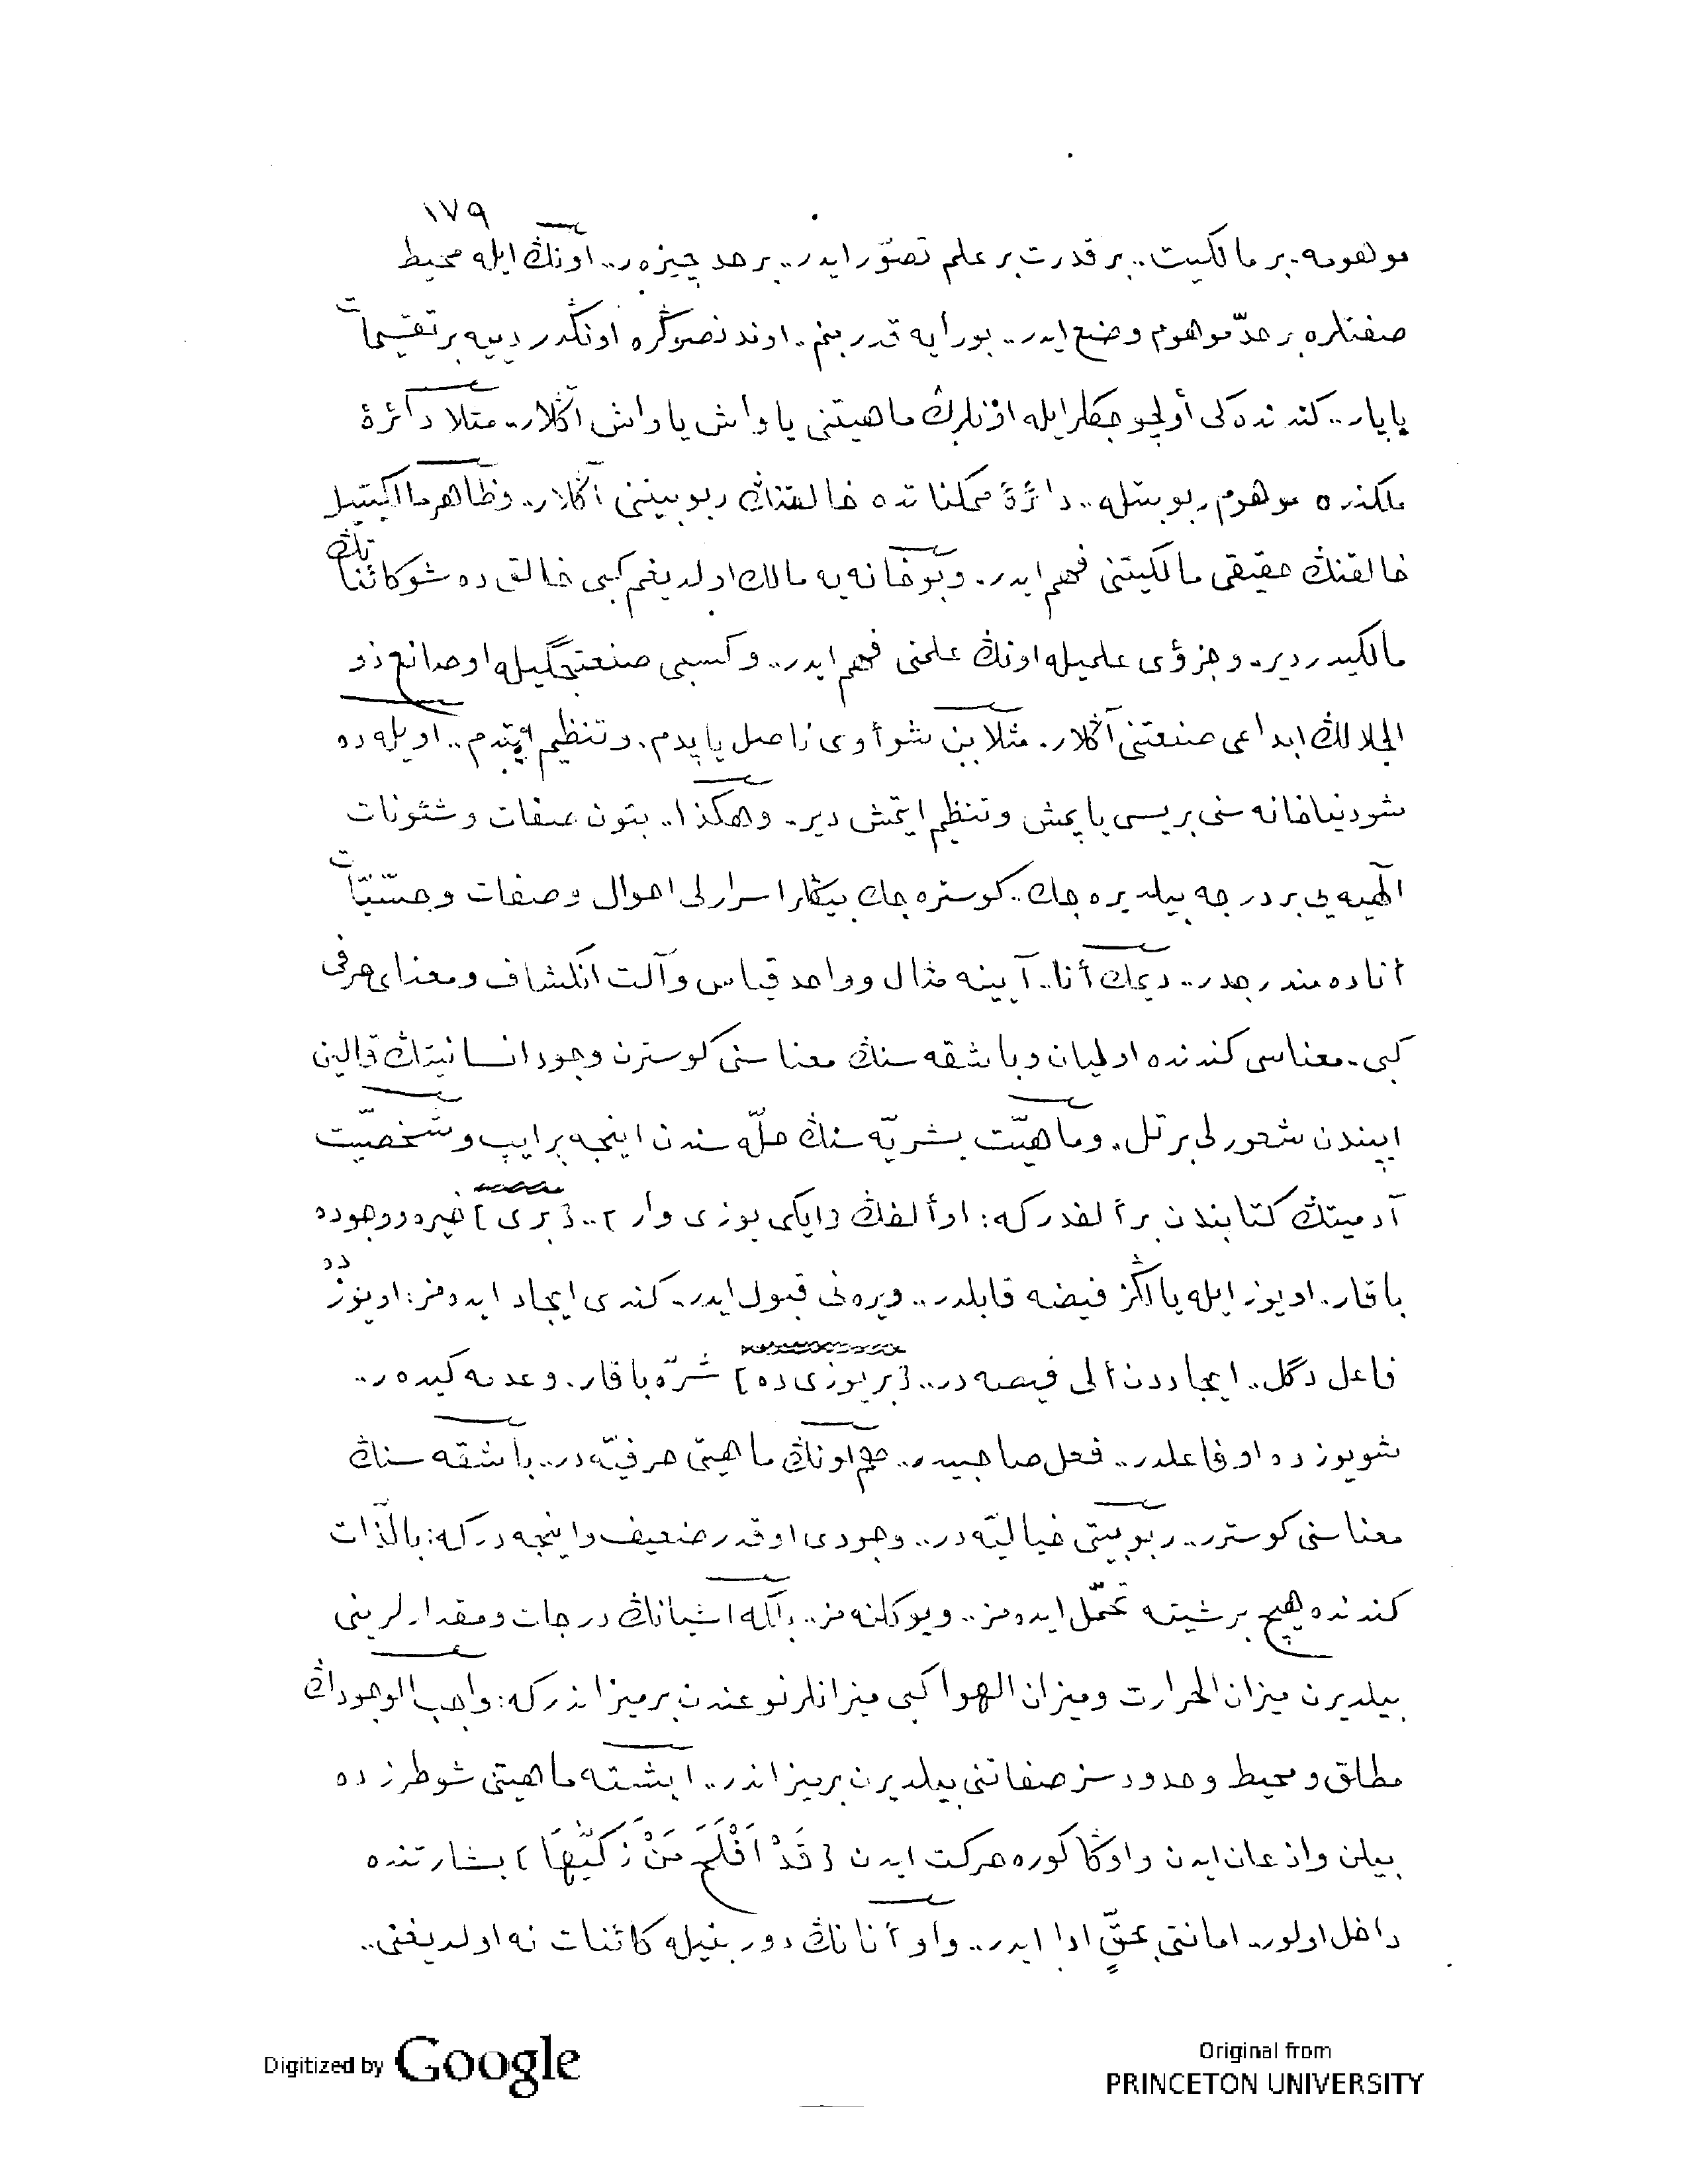 ١٧٩
موهومه. بر مالكيت.. بر قدرت بر علم تصوّر ايدر.. بر حد چيزه ر.. اونڭ ايله محيط
صفتلره بر حدّ موهوم وضع ايدر.. بورايه قدر بنم. اوندنصوڭره اونڭدر دييه بر تقسيمات
ياپار.. كندنده كى أولچوجكلر ايله اونلرڭ ماهيتنى ياواش ياواش آڭلار.. مثلا دائرۀ
ملكنده موهوم ربوبيتله.. دائرۀ ممكناتده خالقنڭ ربوبيتنى آڭلار.. وظاهر مالكيتيله
خالقنڭ حقيقى مالكيتنى فهم ايدر. وبوخانه يه مالك اولديغم كبى خالق ده شوكائناتڭ
مالكيدر دير. وجزؤى علميله اونڭ علمنى فهم ايدر.. وكسبى صنعتجگيله اوصانع ذو
الجلالڭ ابداعى صنعتنى آڭلار. مثلا بن شو أوى ناصل ياپدم. وتنظيم ايتدم.. اويله ده
شودنياخانه سنى بريسى ياپمش وتنظيم ايتمش دير. وهكذا.. بتون صفات وشئونات
الٓهيه يى بر درجه بيلديره جك.. كوستره جك بيڭلر اسرارلى احوال وصفات وحسّيّات
أناده مندرجدر.. ديمك أنا.. آيينه مثال وواحد قياس وآلت انكشاف ومعناى حرفى
كبى. معناسى كندنده اولميان وباشقه سنڭ معناسنى كوسترن وجود انسانيتڭ قالين
ايپندن شعورلى بر تل. وماهيّت بشريّه سنڭ حلّه سندن اينجه بر ايپ وشخصيّت
آدميتڭ كتابندن بر ألفدر كه: اوألفڭ [ايكى يوزى وار].. [برى] خيره ووجوده
باقار. اويوز ايله يالڭز فيضه قابلدر.. ويره نى قبول ايدر. كندى ايجاد ايده مز: اويوزده
فاعل دگل.. ايجاددن ألى قيصه در.. [بر يوزى ده] شرّه باقار. وعدمه كيده ر..
شويوزده اوفاعلدر.. فعل صاحبيدر.. هم اونڭ ماهيتى حرفيّه در.. باشقه سنڭ
معناسنى كوسترر.. ربوبيتى خياليّه در.. وجودى اوقدر ضعيف واينجه در كه: بالذّات
كندنده هيچ بر شيئه تحمّل ايده مز.. ويوكلنه مز.. بلكه اشيانڭ درجات ومقدارلرينى
بيلديرن ميزان الحرارت وميزان الهوا كبى ميزانلر نوعندن بر ميزاندر كه: واجب الوجودڭ
مطلق ومحيط وحدودسز صفاتنى بيلديرن بر ميزاندر.. ايشته ماهيتنى شو طرزده
بيلن واذعان ايدن واوڭا كوره حركت ايدن [قَدْ اَفْلَحَ مَنْ زَكّٰيهَا] بشارتنده
داخل اولور. امانتى بحقٍّ ادا ايدر.. واو أنانڭ دوربينيله كائنات نه اولديغنى..
Digitized by Google
Original from
PRINCETON UNIVERSITY